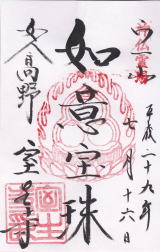 平成二十九年
七月十六日
宀一山
如意宝珠
女人高野
室生寺